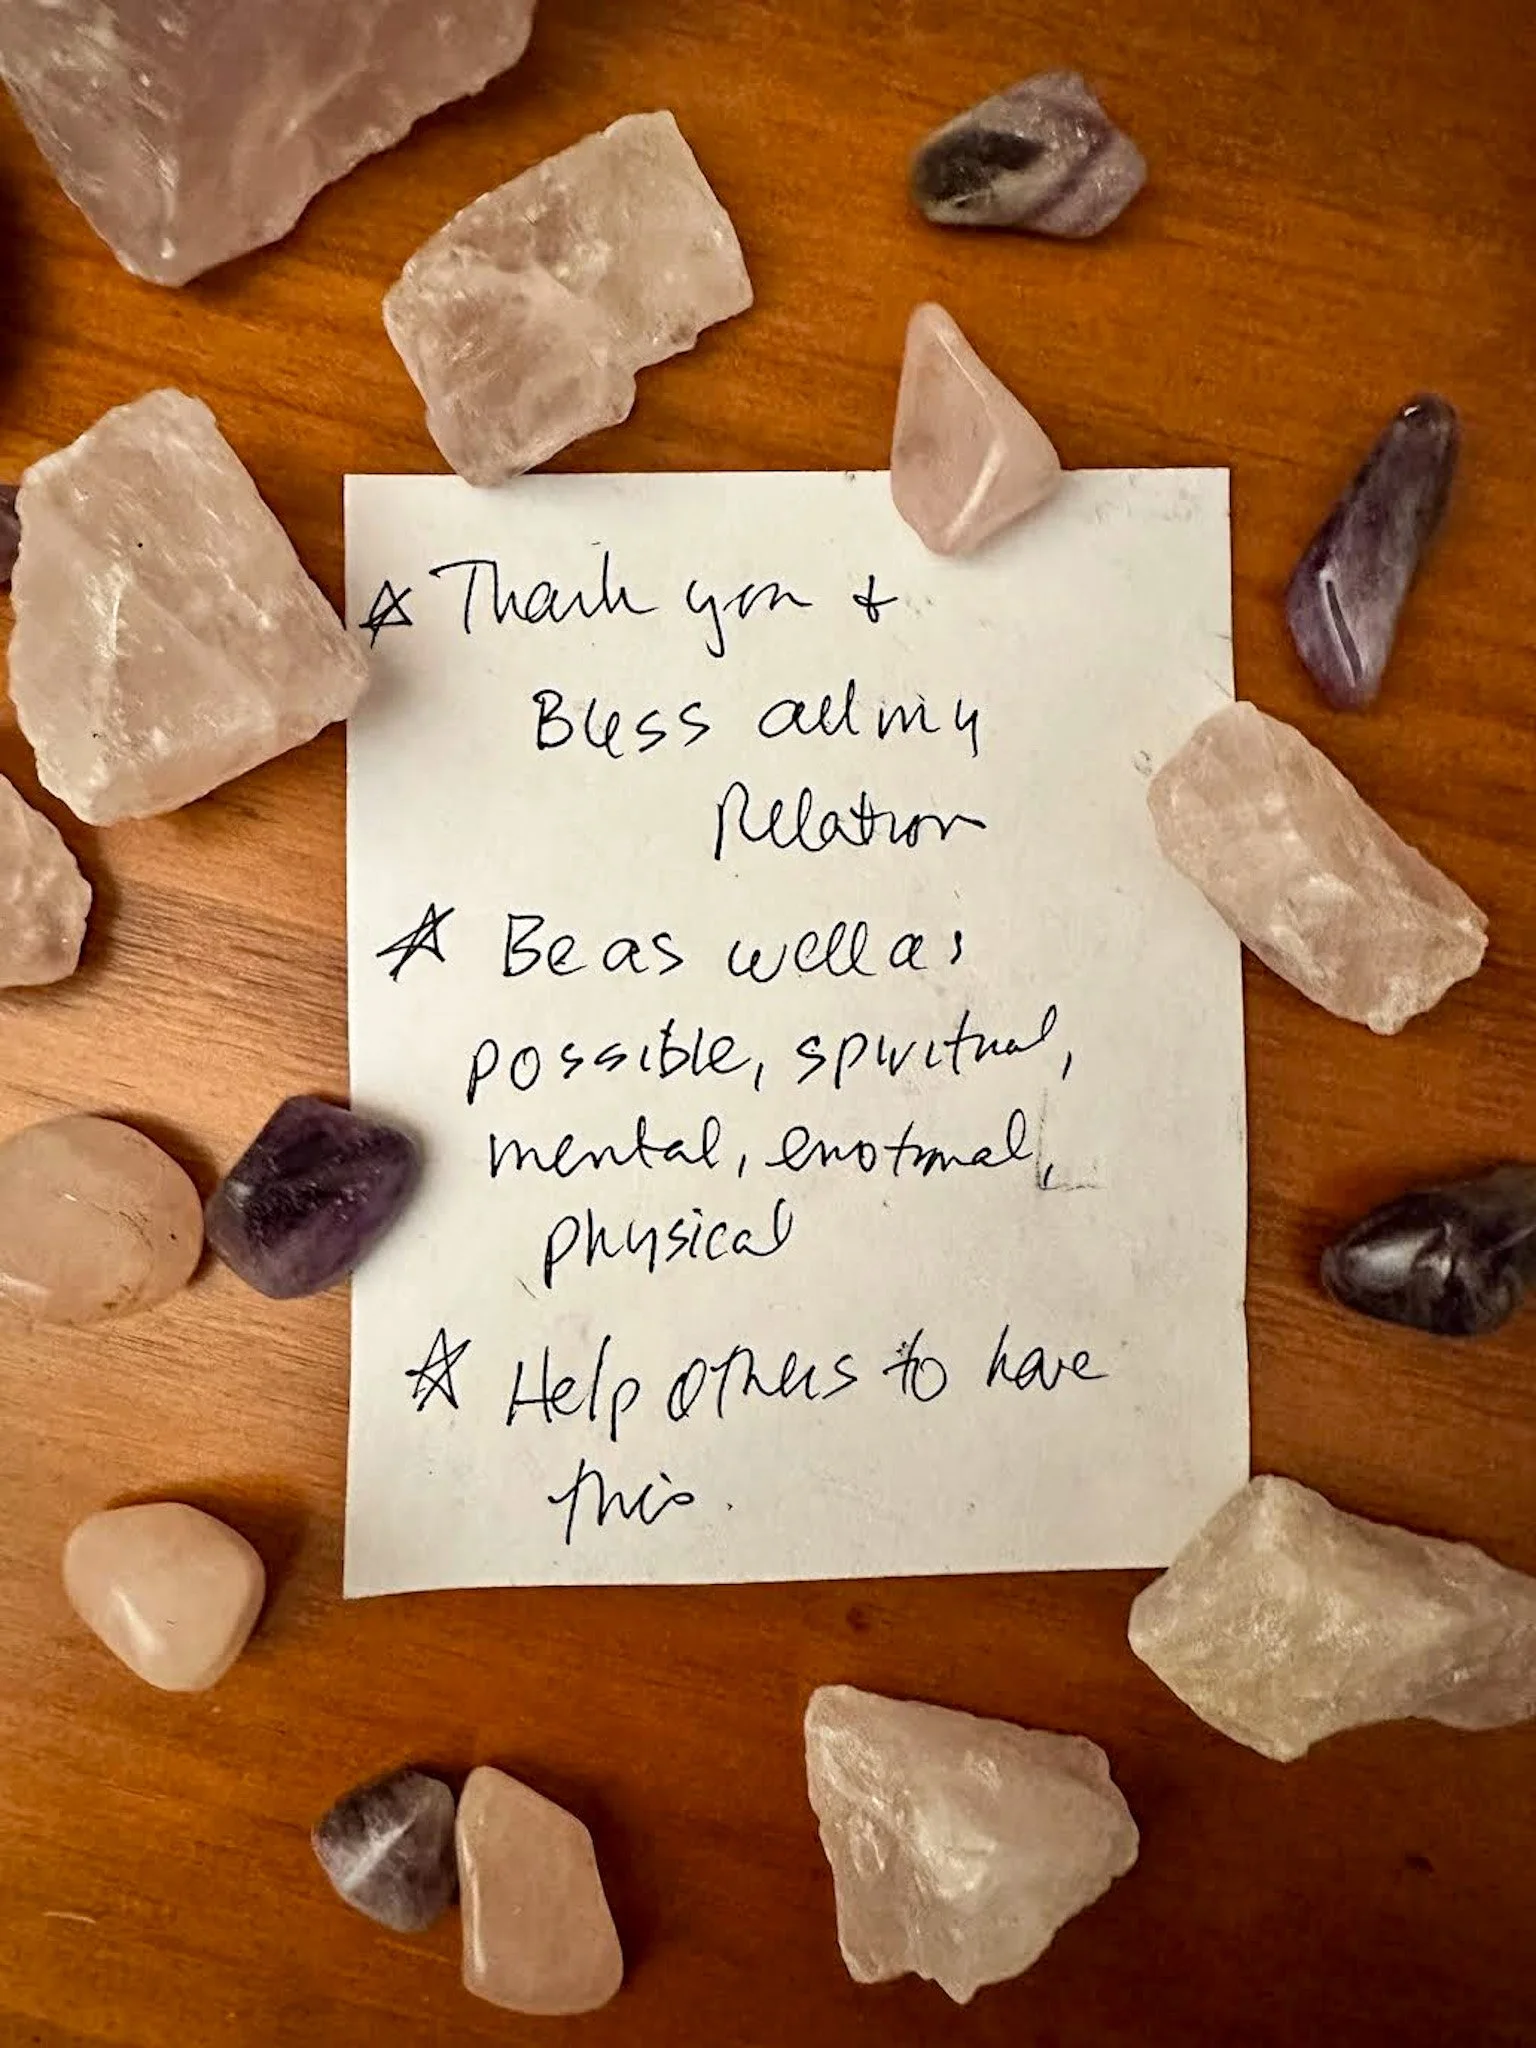 ☆ Thank you +
Bless all my
Relation
☆ Be as well as
possible, spiritual,
mental, emotional,
physical
☆ Help others to have
this.